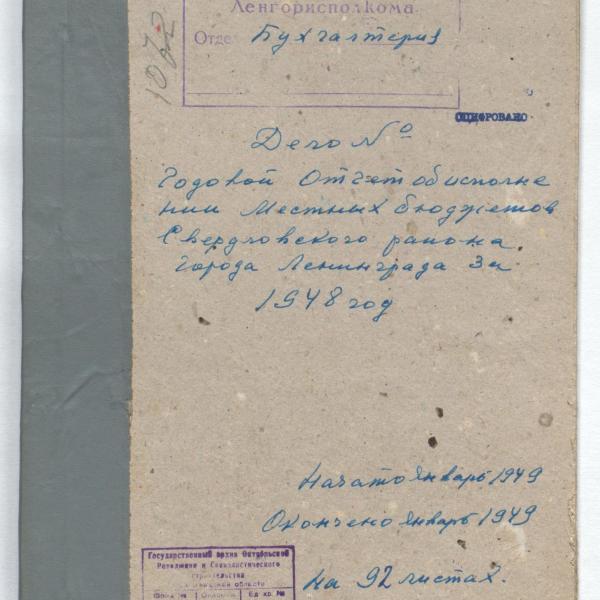 Ленгорисполкома
Отде Бухгалтерия
1072
ОЦИФРОВАНО
Дело №
Годовой Отчет об исполне
нии Местных бюджетов
Свердловского района
города Ленинграда за
1948 год
Начато Январь 1949
Окончено Январь 1949
на 92 листах.
Государственный архив Октябрьской
Революции и Социалистического
строительства
области
Фонд № Опись № Ед. хр. №